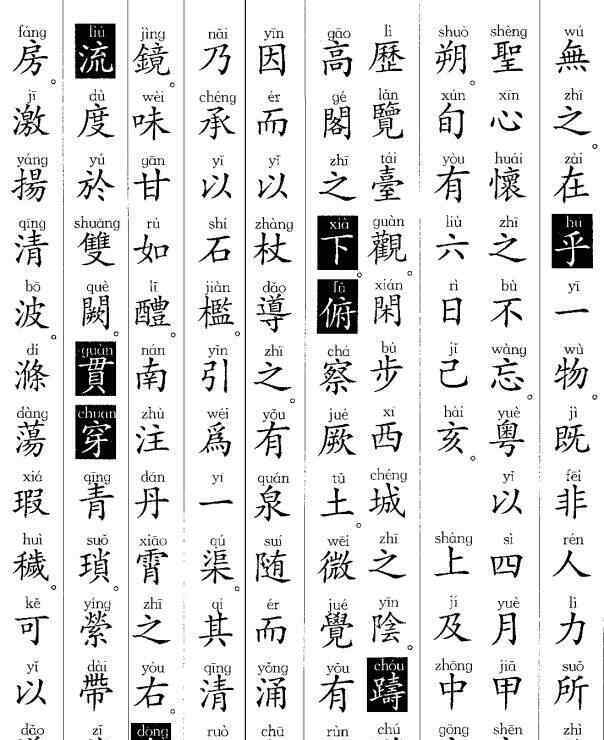 wú無 zhī之 zài在 hū乎 yī一 wù物。 jì既 fēi非 rén人 lì力 suǒ所 zhì
shèng聖 xīn心 huái懷 zhī之 bù不 wàng忘。 yuè粵 yǐ以 sì四 yuè月 jiǎ甲 shēn
shuò朔。 xún旬 yòu有 liù六 rì日 jǐ己 hài亥。 shàng上 jí及 zhōng中 gōng
lì歷 lǎn覽 tái臺 guàn觀。 xián閑 bù步 xī西 chéng城 zhī之 yīn陰。 chóu躊 chú
gāo高 gé閣 zhī之 xià下。 fǔ俯 chá察 jué厥 tǔ土。 wēi微 jué覺 yǒu有 rùn
yīn因 ér而 yǐ以 zhàng杖 dǎo導 zhī之。 yǒu有 quán泉 suí随 ér而 yǒng涌 chū
nǎi乃 chéng承 yǐ以 shí石 jiàn檻。 yǐn引 wéi爲 yī一 qú渠。 qí其 qīng清 ruò
jìng鏡 wèi味 gān甘 rú如 lǐ醴。 nán南 zhù注 dān丹 xiāo霄 zhī之 yòu右。 dōng
liú流 dù度 yú於 shuāng雙 què闕。 guàn貫 chuān穿 qīng青 suǒ瑣。 yíng縈 dài帶 zǐ
fáng房。 jī激 yáng揚 qīng清 bō波。 dí滌 dàng蕩 xiá瑕 huì穢。 kě可 yǐ以 dǎo